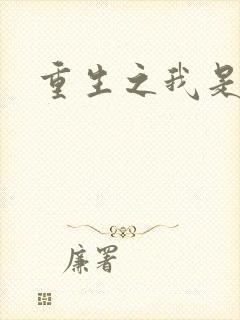 重生之我是
廉署